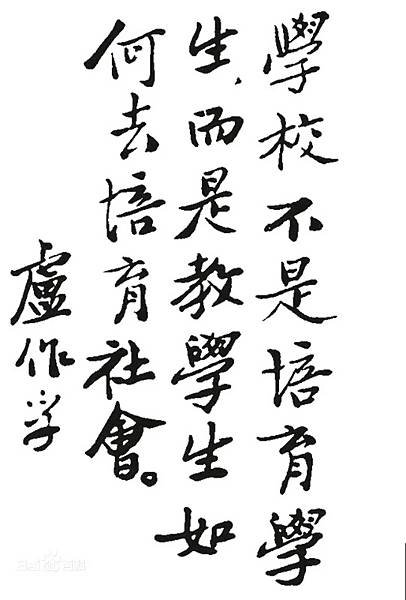 學校不是培育學
生，而是教學生如
何去培育社會。
盧作孚
Bai百科